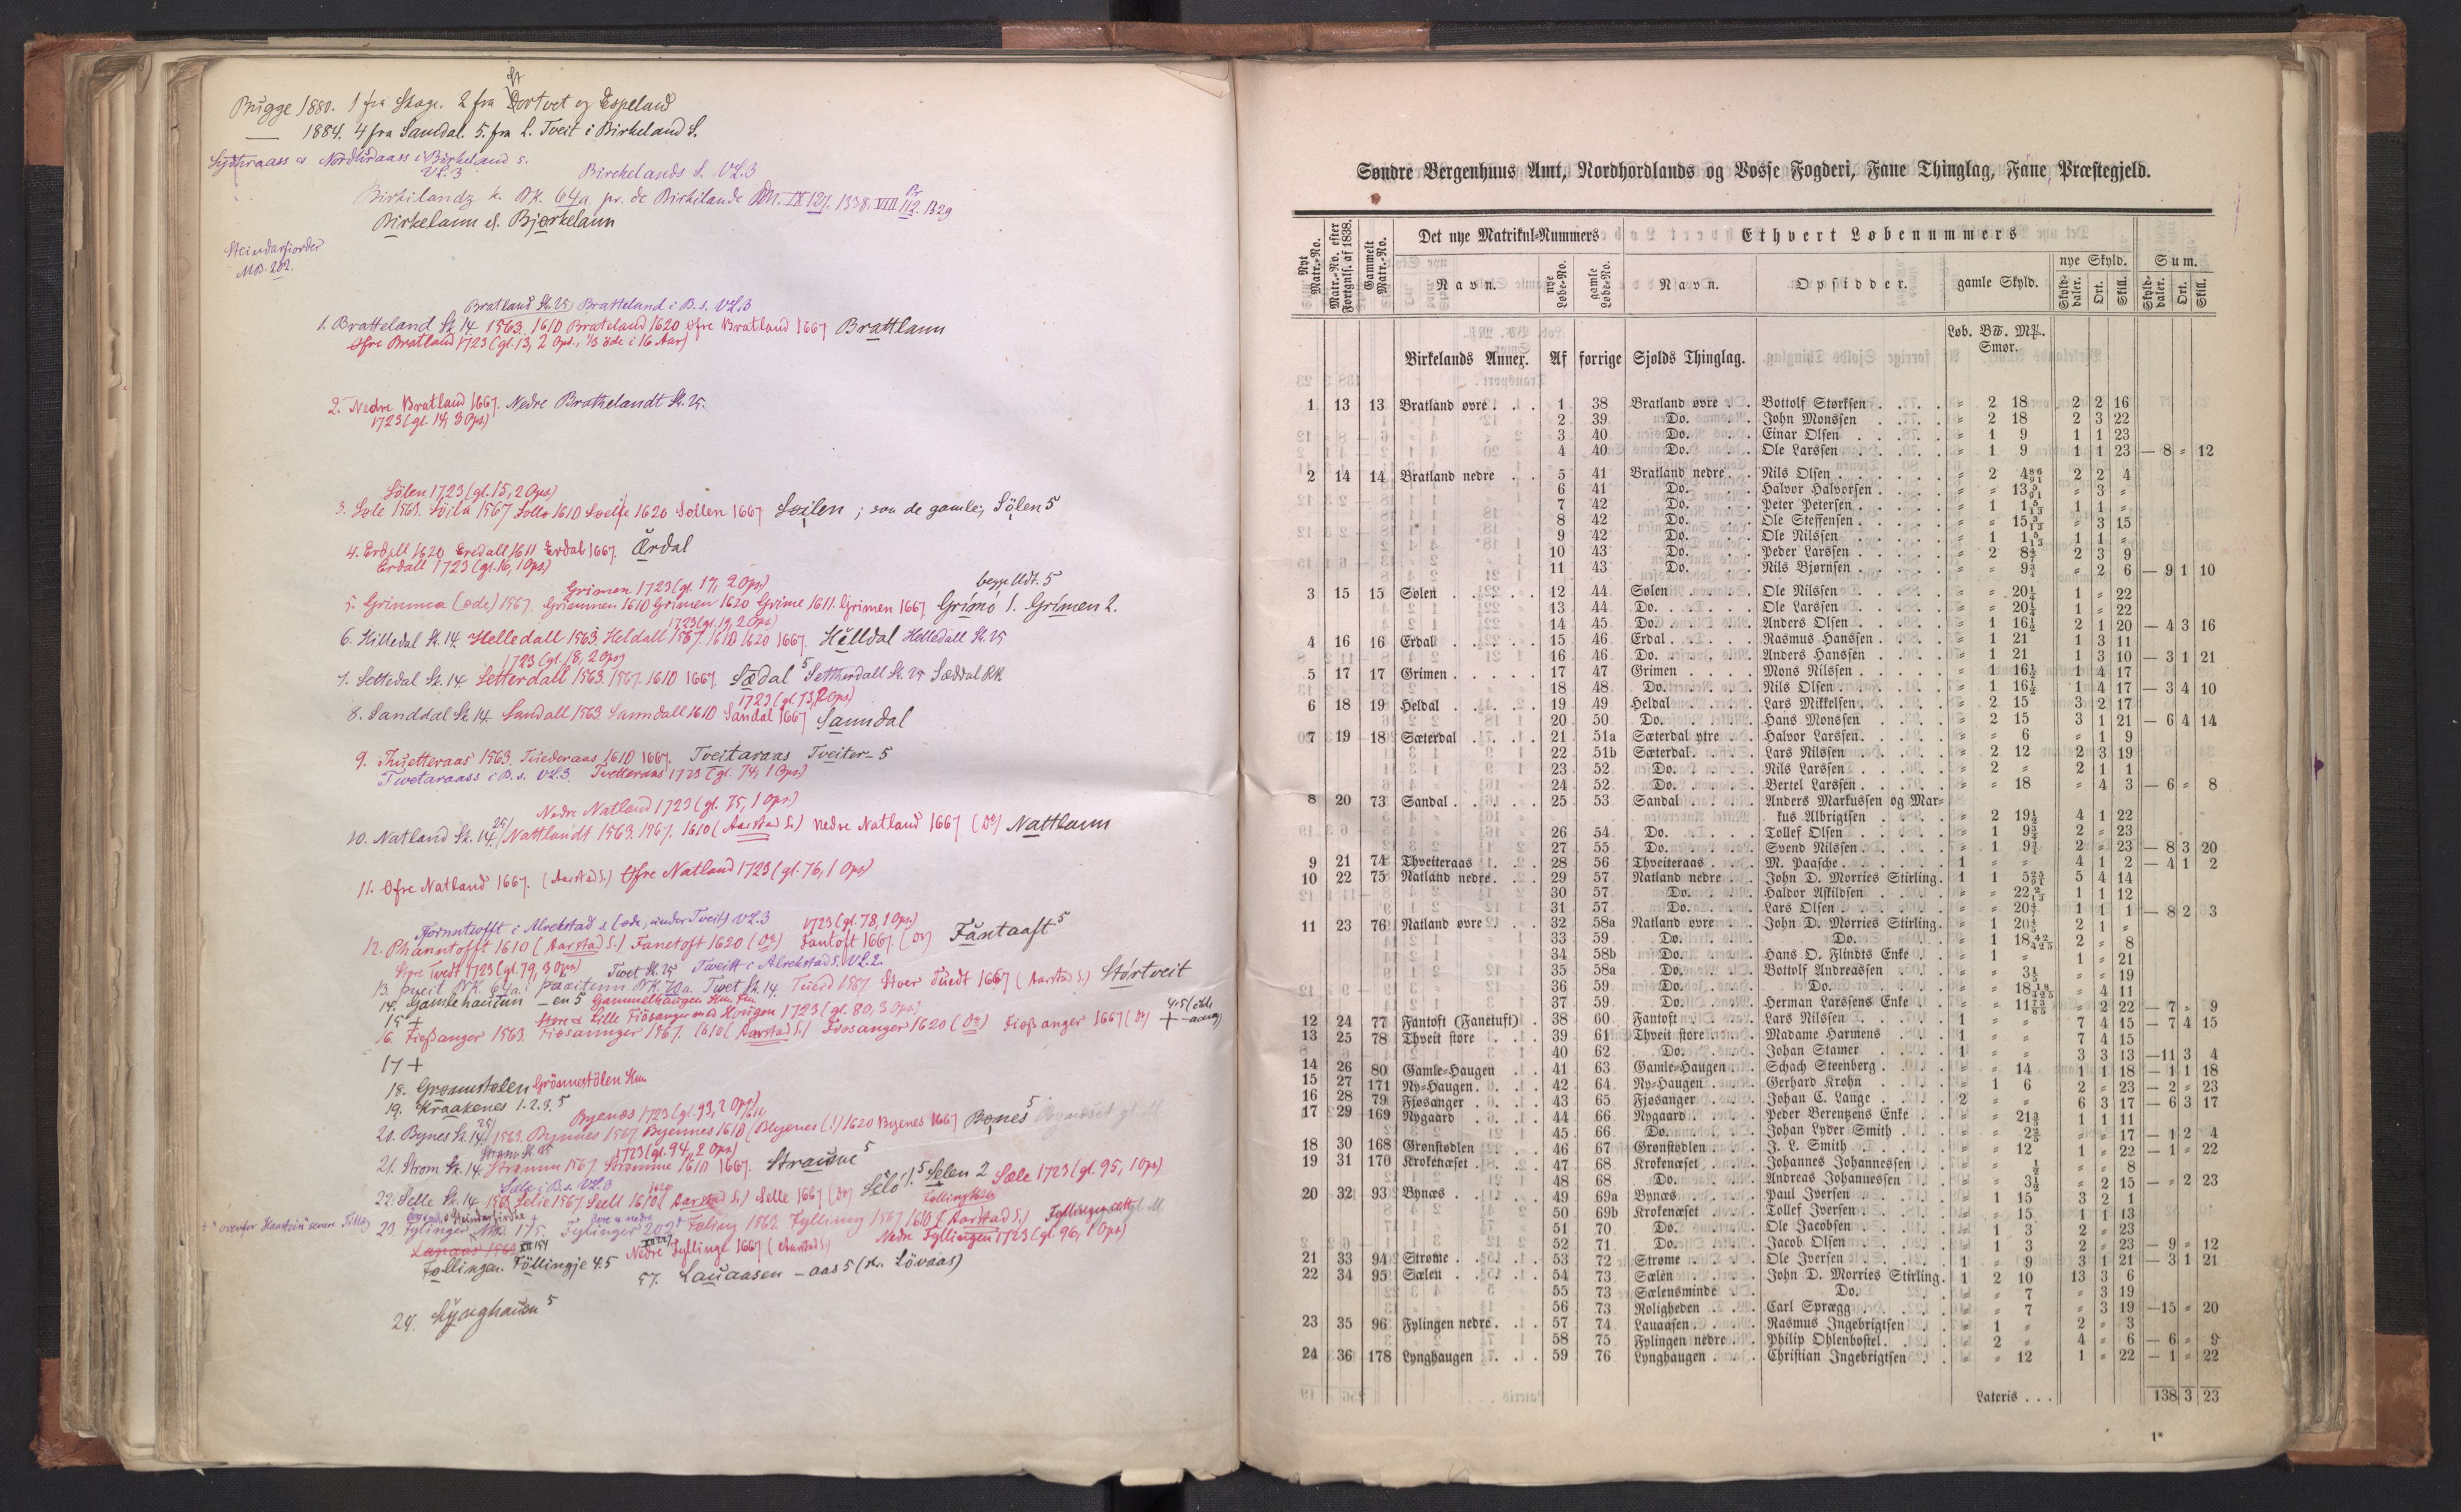 Bugge 1880. 1 fra Skage. 2 fra Dortvet og Espeland
— 1884. 4 fra Sandal. 5. fra L. Tveit i Birkeland S.
Birkeland s. VL.3
Birchelands S. VL.3
Birkilandz k. BK. 64a, pr. de Birkilande DN. IX 121. 1338. VIII 112. 1329
Birkelann el. Bjørkelann
Steindarfiorder
MB. 202.
Bratland St. 25) Bratteland i B. s. VL.3
1. Bratteland St. 14. 1563. 1610 Brateland 1620 Øfre Bratland 1667 Brattlann
Øfre Bratland 1723 (gl. 13, 2 Ops., 1/3 öde i 16 Aar)
2. Nedre Bratland 1667. Nedre Brathelandt St. 25.
1723 (gl. 14, 3 Ops)
Sölen 1723 (gl. 15, 2 Ops)
3. Søle 1563. Söila 1567 1610 1620 Søllen 1667 Søilen ; saa de gamle; Sölen 5
4. Erdall 1620 Eredall 1611 Erdal 1667. Ærdal
Erdall 1723 (gl. 16, 1 Ops)
Grimen 1723 (gl. 17, 2 Ops) begge Udt. 5
5. Grimma (øde) 1567. 1610 Grimen 1620 Grime 1611. Grimen 1667 Grímó 1. Grímen 2.
1723 (gl. 19, 2 Ops)
6. Hilledal St. 14. Helledall 1563. Heldall 1567 1610 1620 1667. Helldal Helledall St. 25
1723 (gl. 18, 2 Ops)
7. Settedal St. 14. Setterdall 1563. 1567. 1610 1667. Sædal 5 Setherdall St. 25 Sæddal RK
1723 (gl. 73, 2 Ops)
8. Sanddal St. 14. Sandall 1563. Sanndall 1610 Sandal 1667 Sanndal
9. Thuetteraas 1563. Tuederaas 1610 1667. Tveitaraas Tveiter- 5
Twetaraass i B. s. VL.3. Tvetteraas 1723 (gl. 74, 1 Ops)
Nedre Natland 1723 (gl. 75, 1 Ops)
10. Natland St. 14. 25) Nattlandt 1563. 1567. 1610 (Aarstad S.) Nedre Natland 1667 (Do) Nattlann
11. Øfre Natland 1667. (Aarstad S.) Øfre Natland 1723 (gl. 76, 1 Ops)
i Alrekstad s (øde, under Tveit) VL.3 1723 (gl. 78, 1 Ops.)
12. Phanntofft 1610 (Aarstad S.) Fanetoft 1620 (Do) Fantoft 1667. (Do) Fantaaft 5
Tvedt 1723 (gl. 79, 3 Ops) Twet St. 25 Tweitt i Alrekstad S. VL.2.
13. þveit BK. 64a. BK. 70a. Twet St. 14. Tueid 1567. Stoer Tuedt 1667 (Aarstad S.) Stórtveit
14. Gamlehaúun – en 5 Gammelhaugen
15 +
Store & Lille Fiösanger med Hougen 1723 (gl. 80, 3 Ops)
16. Fiøsanger 1563. Fiosannger 1567. 1610 (Aarstad S.) Fiosanger 1620 (Do) Fiosanger 1667 (Do) +
17 +
18. Grønnstølen Grönnestölen
19. Kraakenes 1. 2. 3. 5
Byenes 1723 (gl. 93, 2 Ops)
20. Bynes St. 14. 25) 1563. Bynnes 1567 Byennes 1610 Blyenes (!) 1620 Byenes 1667 Bønes 5
Strøm St. 25 1723 (gl. 94, 2 Ops)
21. Strøm St. 14. Strømm 1567. Strømme 1610 1667. Straume 5
Sæle i B. s. VL.3
22. Selle St. 14. 1563. Selle 1567. Seell 1610 (Aarstad S.) Selle 1667 (Do) Séló 1. 5 Selen 2 Sæle 1723 (gl. 95, 1 Ops)
23. Fylinger MB. 175. Fylinger 202 Følling 1563. Fylling 1567 1610 (Aarstad S.)
Nedre Fyllinge 1667 (Aarstad S.) Nedre Fyllingen 1723 (gl. 96, 1 Ops)
Føllingen. Föllingje 4.5
57. Lauaasen – aas 5 (sk. Lövaas)
24. Lynghaúen 5
Søndre Bergenhuus Amt, Nordhordlands og Vosse Fogderi, Fane Thinglag, Fane Præstegjeld.
Nyt Matr.-No. | Matr.-No. efter Fortegnls. af 1838. | Gammelt Matr.-No. | Det nye Matrikul-Nummers | Ethvert Løbenummers
Navn. | nye Løbe-No. | gamle Løbe-No. | Navn. | Opsidder. | gamle Skyld. | nye Skyld. | Sum.
Skylddaler. | Ort. | Skill. | Skylddaler. | Ort. | Skill.
Løb. B℔. M℔.
Smør.
Birkelands Annex. | Af | forrige | Sjolds Thinglag.
1 13 13 Bratland øvre . . . 1 38 Bratland øvre . . Bottolf Størksen . . . . „ 2 18 2 2 16
2 39 Do. John Monssen . . . . „ 2 18 2 3 22
3 40 Do. Einar Olsen . . . . „ 1 9 1 1 23
4 40 Do. Ole Larssen . . . . „ 1 9 1 1 23 — 8 „ 12
2 14 14 Bratland nedre . . 5 41 Bratland nedre . . Nils Olsen . . . . „ 2 4 86/91 2 2 4
6 41 Do. Halvor Halvorsen . . . . „ „ 13 5/91 „ 3 „
7 42 Do. Peter Petersen . . . . „ 1 1 5/13 1 1 „
8 42 Do. Ole Steffensen . . . . „ „ 15 3/13 „ 3 15
9 42 Do. Ole Nilssen . . . . „ 1 1 5/13 1 1 „
10 43 Do. Peder Larssen . . . . „ 2 8 4/7 2 3 9
11 43 Do. Nils Bjørnsen . . . . „ „ 9 3/4 „ 2 6 — 9 1 10
3 15 15 Sølen . . . . 12 44 Sølen . . . . Ole Nilssen . . . . „ „ 20 1/4 1 „ 22
13 44 Do. . . . . Ole Larssen . . . . „ „ 20 1/4 1 „ 22
14 45 Do. . . . . Anders Olsen . . . . „ 1 16 1/2 2 1 20 — 4 3 16
4 16 16 Erdal . . . . 15 46 Erdal . . . . Rasmus Hanssen . . . . „ 1 21 1 3 11
16 46 Do. . . . . Anders Hanssen . . . . „ 1 21 1 3 10 — 3 1 21
5 17 17 Grimen . . . . 17 47 Grimen . . . . Mons Nilssen . . . . „ 1 16 1/2 1 4 17
18 48 Do. . . . . Nils Olsen . . . . „ 1 16 1/2 1 4 17 — 3 4 10
6 18 19 Heldal . . . . 19 49 Heldal . . . . Lars Mikkelsen . . . . „ 2 15 3 2 17
20 50 Do. . . . . Hans Monssen . . . . „ 2 15 3 1 21 — 6 4 14
7 19 18 Sæterdal . . . . 21 51a Sæterdal ytre . . Halvor Larssen . . . . „ „ 6 „ 1 9
22 51b Sæterdal . . . . Lars Nilssen . . . . „ 2 12 2 3 19
23 52 Do. . . . . Nils Larssen . . . . „ 2 „ 2 1 1
24 52 Do. . . . . Bertel Larssen . . . . „ „ 18 „ 4 3 — 6 „ 8
8 20 73 Sandal . . . . 25 53 Sandal . . . . Anders Markussen og Mar-
kus Albrigtsen . . . „ 2 19 1/2 4 1 22
26 54 Do. . . . . Tollef Olsen . . . . „ 1 9 3/4 2 „ 23
27 55 Do. . . . . Svend Nilssen . . . . „ 1 9 3/4 2 „ 23 — 8 3 20
9 21 74 Thveiteraas . . . . 28 56 Thveiteraas . . . . M. Paasche . . . . 1 „ „ 4 1 2 — 4 1 2
10 22 75 Natland nedre . . . 29 57 Natland nedre . . John D. Morries Stirling. 1 1 5 25/91 5 4 14
30 57 Do. Haldor Askildsen . . . . „ „ 22 2/13 1 1 12
31 57 Do. Lars Olsen . . . . „ „ 20 4/7 1 1 1 — 8 2 3
11 23 76 Natland øvre . . . 32 58a Natland øvre . . John D. Morries Stirling. „ 1 20 4/5 2 1 „
33 59 Do. Do. „ 1 18 42/425 2 „ 8
34 58b Do. Hans O. Flindts Enke . . „ 1 „ 1 „ 21
35 58a Do. Bottolf Andreassen . . „ „ 3 1/5 „ „ 19
36 59 Do. Do. „ „ 18 18/425 „ 4 11
37 59 Do. Herman Larssens Enke . . „ „ 11 73/85 „ 2 22 — 7 „ 9
12 24 77 Fantoft (Fanetuft) . 38 60 Fantoft . . . . Lars Nilssen . . . . 1 „ „ 7 4 15 — 7 4 15
13 25 78 Thveit store . . . 39 61 Thveit store . . . Madame Harmens . . . 1 „ „ 7 4 15
40 62 Do. Johan Stamer . . . 1 „ „ 3 3 13 — 11 3 4
14 26 80 Gamle-Haugen . . 41 63 Gamle-Haugen . . Schach Steenberg . . . „ „ 14 1 1 18 — 1 1 18
15 27 171 Ny-Haugen . . . . 42 64 Ny-Haugen . . . . Gerhard Krohn . . . „ 1 6 2 „ 23 — 2 „ 23
16 28 79 Fjøsanger . . . . 43 65 Fjøsanger . . . . Johan C. Lange . . . 2 „ „ 6 3 17 — 6 3 17
17 29 169 Nygaard . . . . 44 66 Nygaard . . . . Peder Berentzens Enke . . „ „ 21 3/5 1 1 11
45 66 Do. . . . . Johan Lyder Smith . . . „ „ 2 2/5 „ „ 17 — 1 2 4
18 30 168 Grønstødlen . . . . 46 67 Grønstødlen . . . . J. L. Smith . . . . „ „ 12 1 „ 22 — 1 „ 22
19 31 170 Krokenæset . . . . 47 68 Krokenæset . . . . Johannes Johannessen . . „ „ 1/2 „ „ 8
48 68 Do. . . . . Andreas Johannessen . . „ „ 3 1/2 „ 2 15 — „ 2 23
20 32 93 Bynæs . . . . 49 69a Bynæs . . . . Paul Iversen . . . . „ 1 15 3 2 1
50 69b Krokenæset . . . . Tollef Iversen . . . . „ „ 15 1 1 13
51 70 Do. . . . . Ole Jacobsen . . . . „ 1 3 2 „ 23
52 71 Do. . . . . Jacob Olsen . . . . „ 1 3 2 „ 23 — 9 „ 12
21 33 94 Strøme . . . . 53 72 Strøme . . . . Ole Iversen . . . . 1 „ 9 3 1 21 — 3 1 21
22 34 95 Sælen . . . . 54 73 Sælen . . . . John D. Morries Stirling. 1 2 10 13 3 6
55 73 Sælensminde . . Do. „ „ 7 „ 3 19
56 73 Roligheden . . . . Carl Sprægg . . . . „ „ 7 „ 3 19 — 15 „ 20
23 35 96 Fylingen nedre . . . 57 74 Lauaasen . . . . Rasmus Ingebrigtsen . . „ 1 „ 2 „ 3
58 75 Fylingen nedre . . Philip Ohlenbostel . . . „ 2 „ 4 „ 6 — 6 „ 9
24 36 178 Lynghaugen . . . . 59 76 Lynghaugen . . . . Christian Ingebrigtsen . . „ „ 12 1 „ 22 — 1 „ 22
Lateris . . . 138 3 23
1*